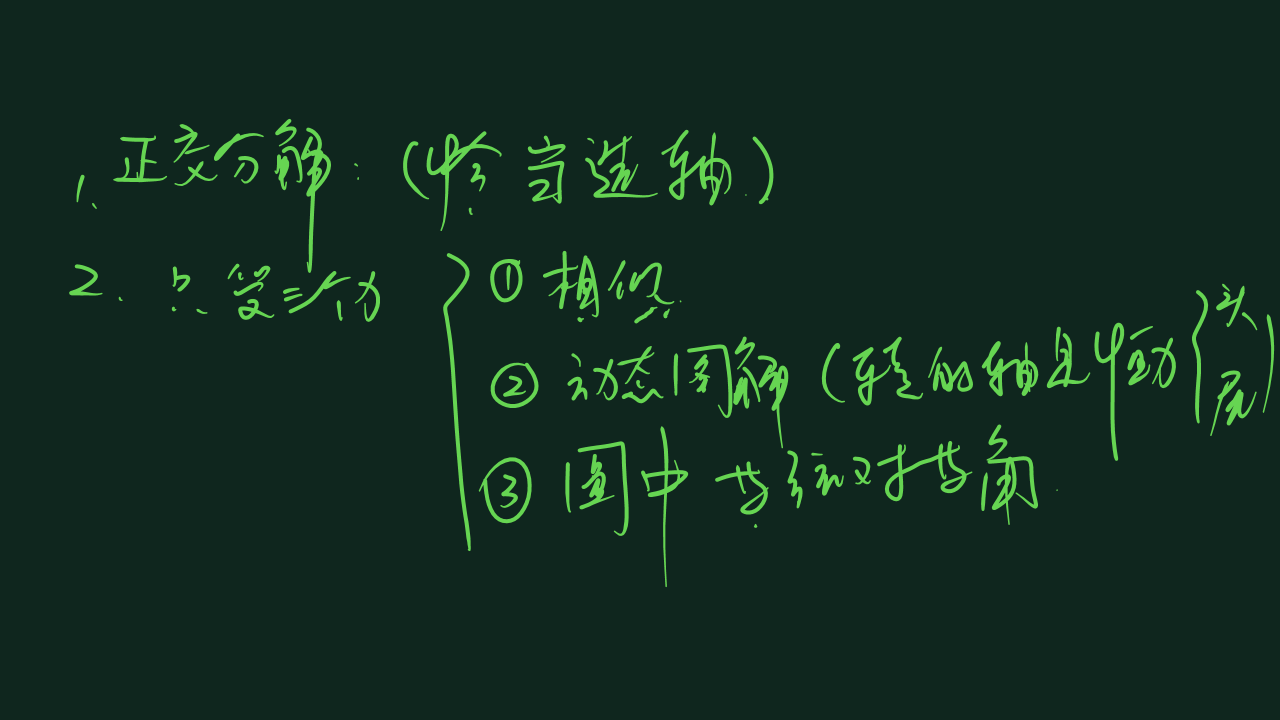 1、正交分解：（恰当选轴）
2、只受三个力
①相似
②动态图解（转的轴是恒力{头 尾）
③圆中共弦对共角